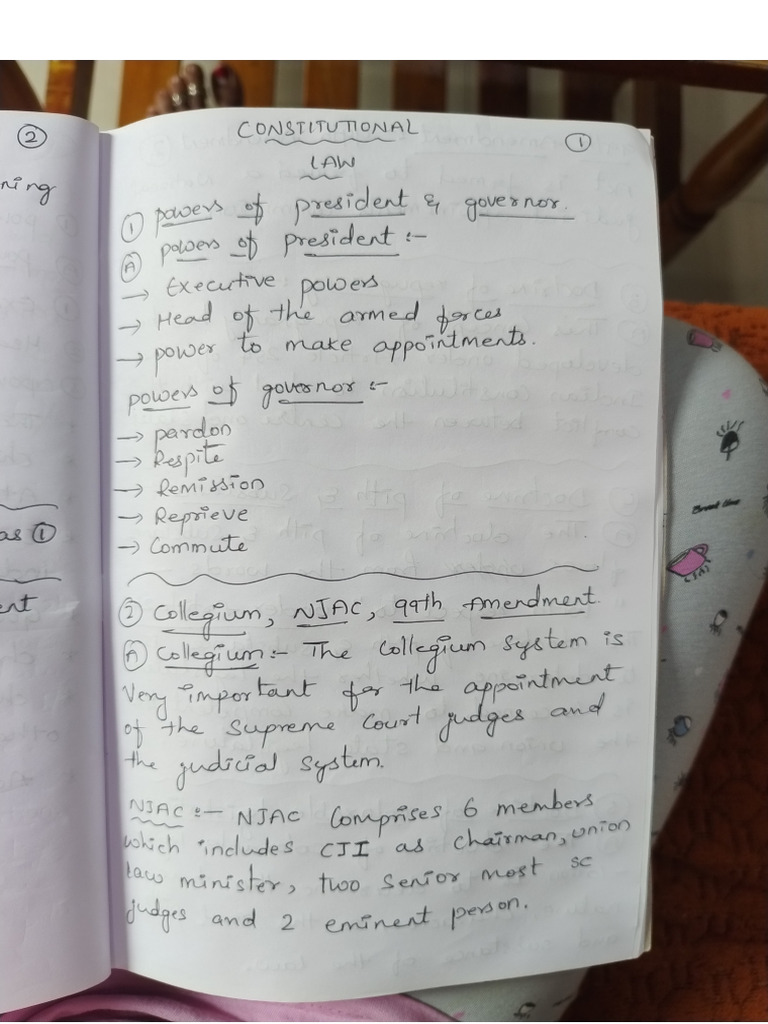 ②
ning
as ①
ent
CONSTITUTIONAL
①
LAW
① powers of president & governor.
Ⓐ powers of president :-
→ Executive powers
→ Head of the armed forces
→ power to make appointments.
powers of governor :-
→ pardon
→ Respite
→ Remission
→ Reprieve
→ Commute
② Collegium, NJAC, 99th Amendment.
Ⓐ Collegium :- The Collegium System is
Very important for the appointment
of the Supreme Court judges and
the judicial system.
NJAC :- NJAC Comprises 6 members
which includes CJI as Chairman, union
law minister, two senior most SC
judges and 2 eminent person.